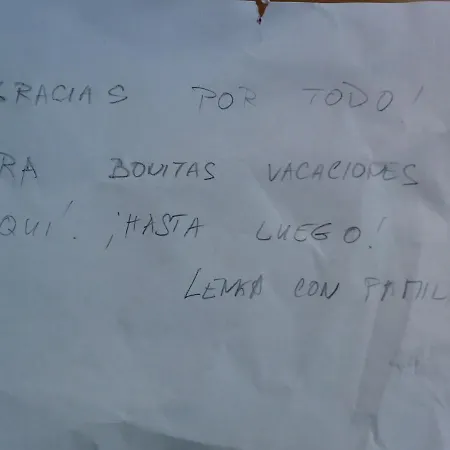 GRACIAS POR TODO!
RA BONITAS VACACIONES
AQUÍ! ¡HASTA LUEGO!
LENKA CON FAMIL